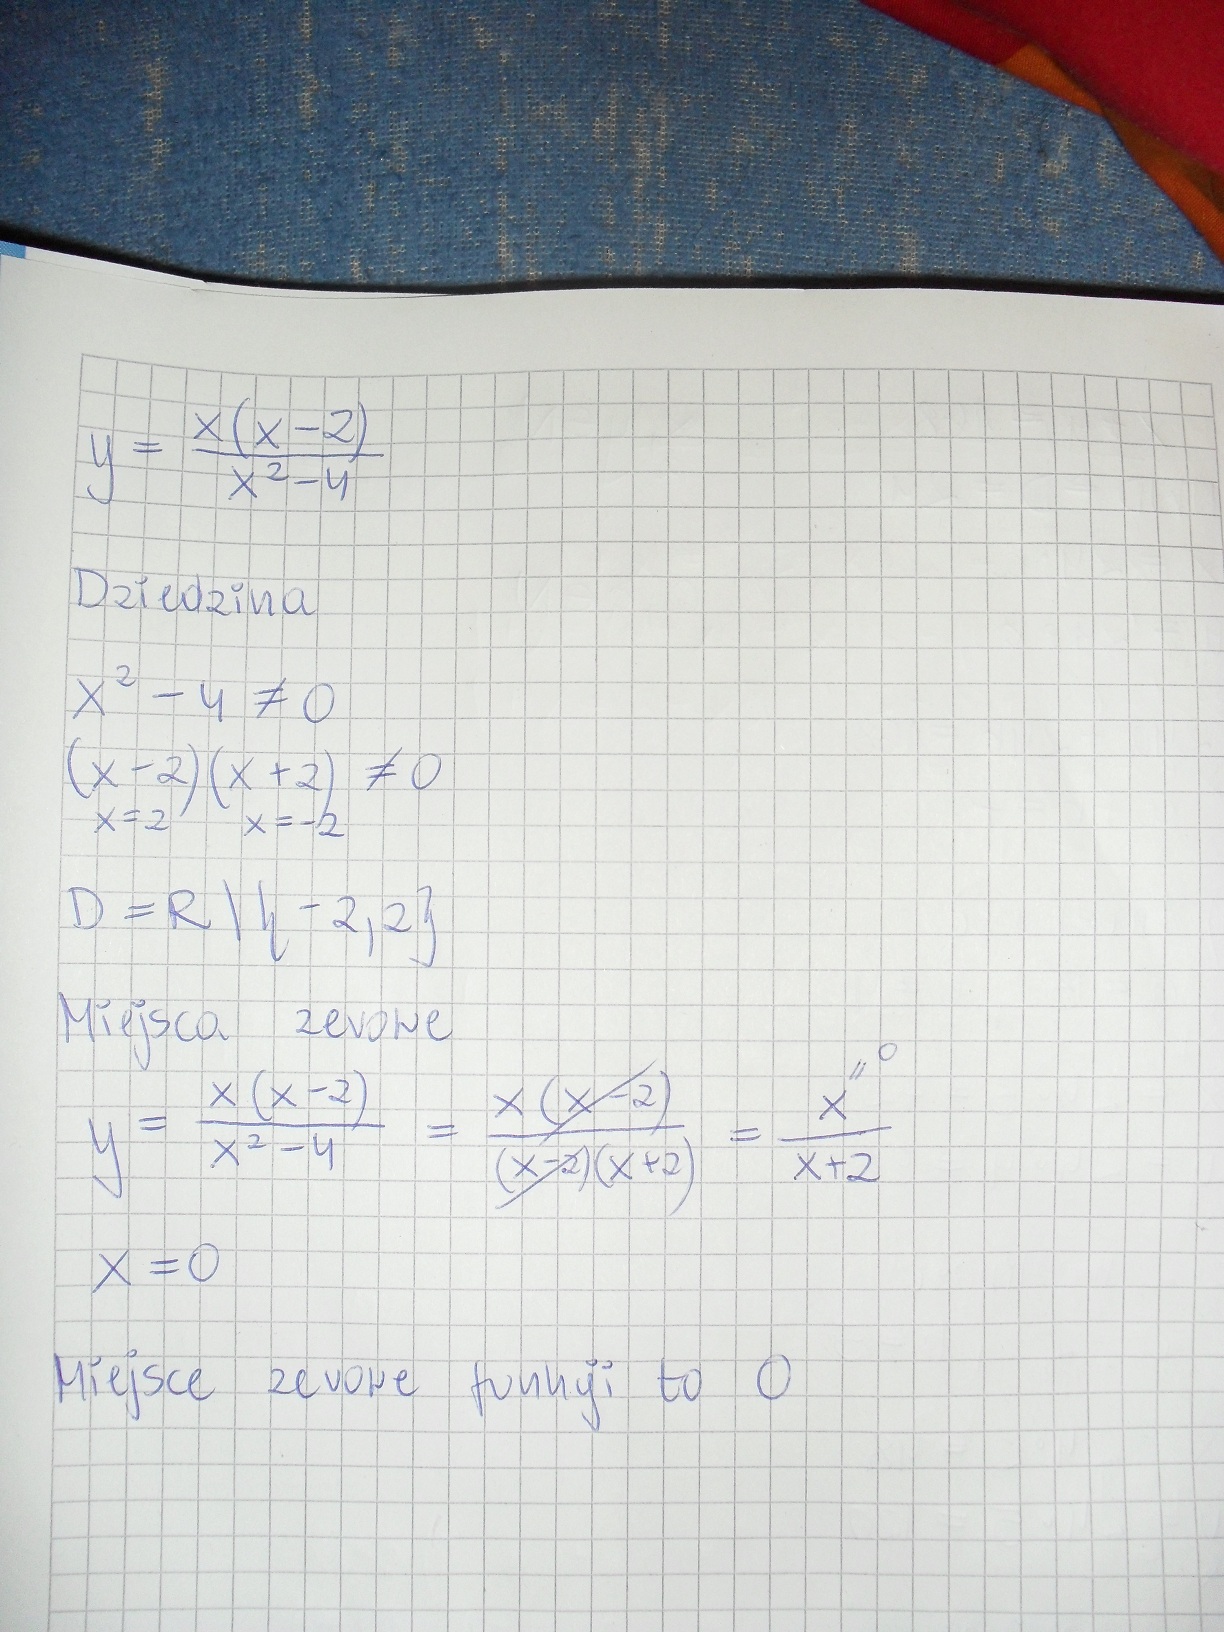 y = x(x-2)/x²-4
Dziedzina
x² - 4 ≠ 0
(x-2)(x+2) ≠ 0
x=2 x=-2
D = R \ {-2,2}
Miejsca zerowe
y = x(x-2)/x²-4 = x(x-2)/(x-2)(x+2) = x/x+2 " 0
x = 0
Miejsce zerowe funkcji to 0